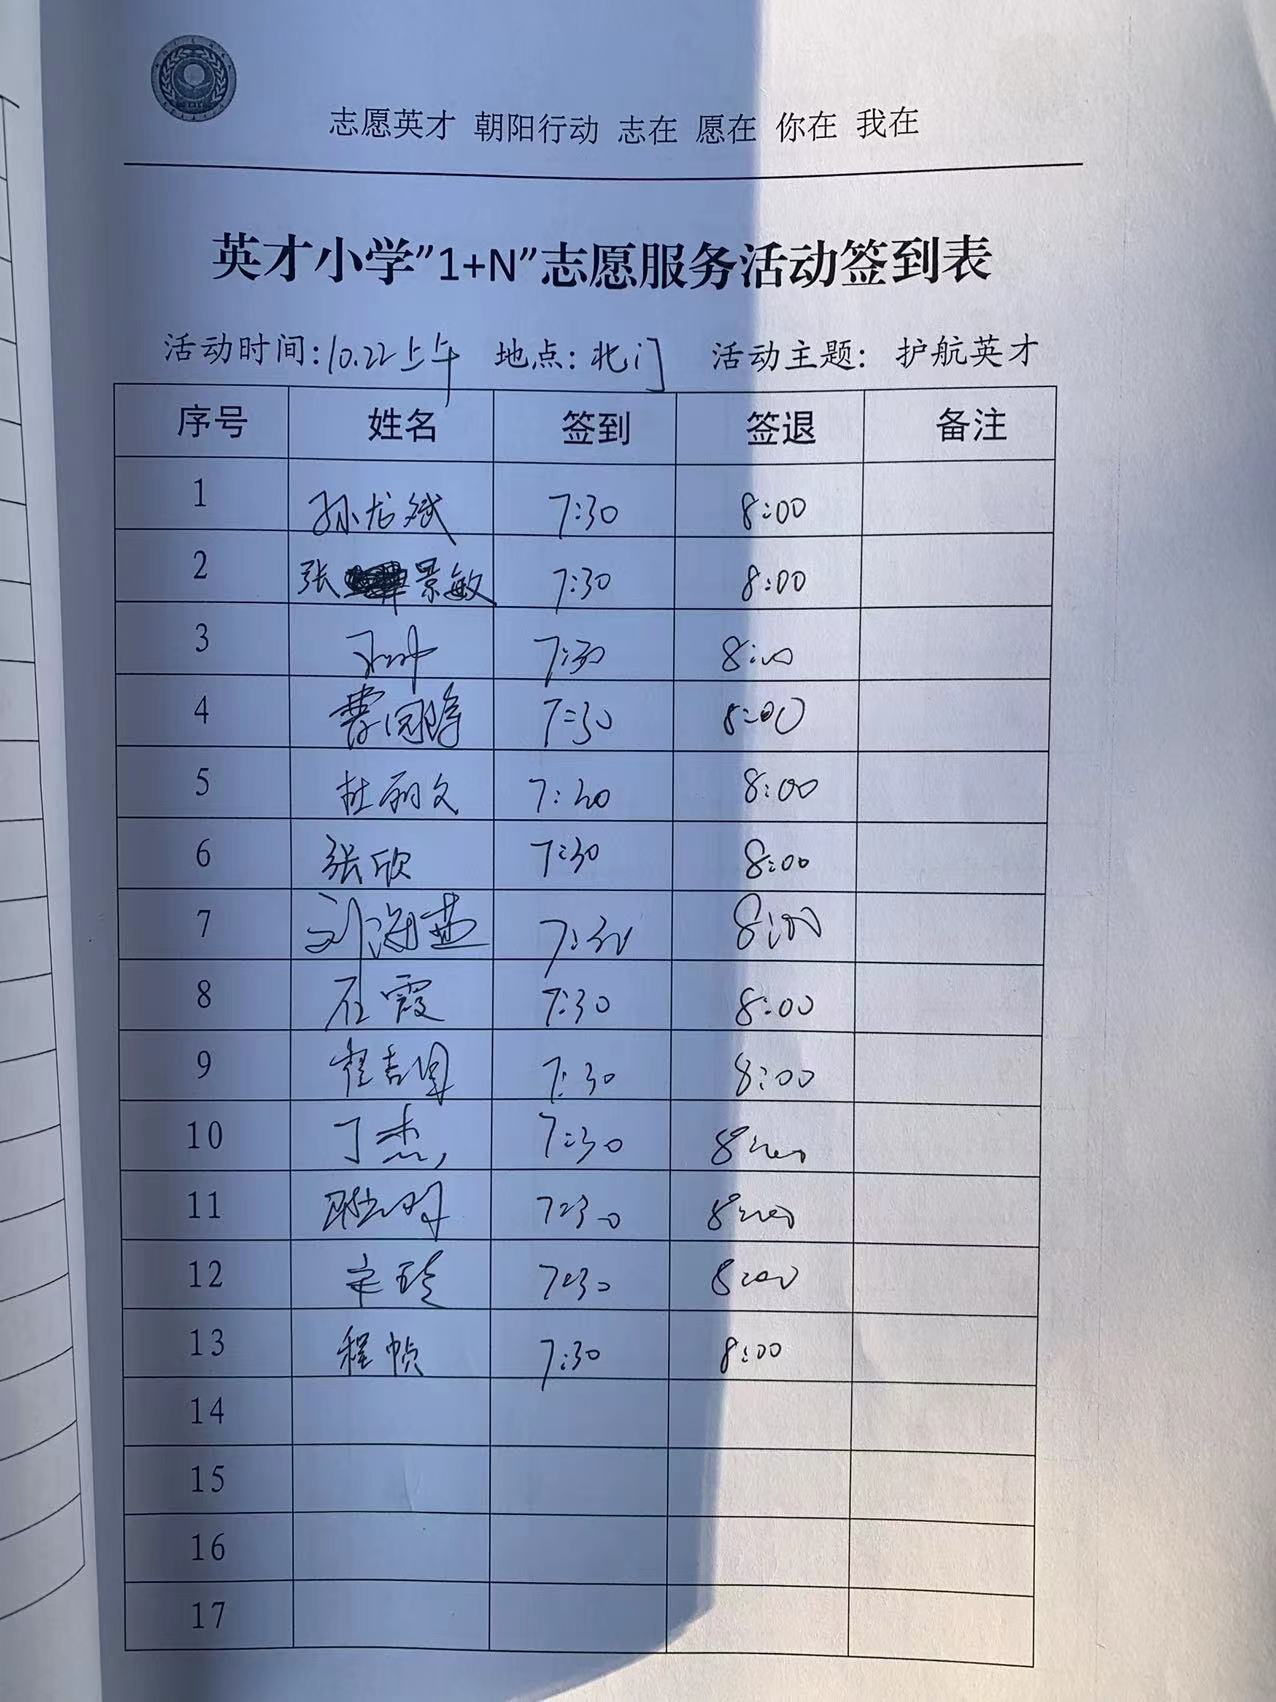 志愿英才 朝阳行动 志在 愿在 你在 我在
英才小学"1+N"志愿服务活动签到表
活动时间:10.22上午 地点:北门 活动主题: 护航英才
序号 姓名 签到 签退 备注
1 孙龙斌 7:30 8:00
2 张景敏 7:30 8:00
3 7:30 8:00
4 7:30 8:00
5 杜丽文 7:30 8:00
6 张欣 7:30 8:00
7 刘海燕 7:30 8:00
8 石霞 7:30 8:00
9 7:30 8:00
10 丁杰 7:30 8:00
11 7:30 8:00
12 7:30 8:00
13 程帧 7:30 8:00
14
15
16
17